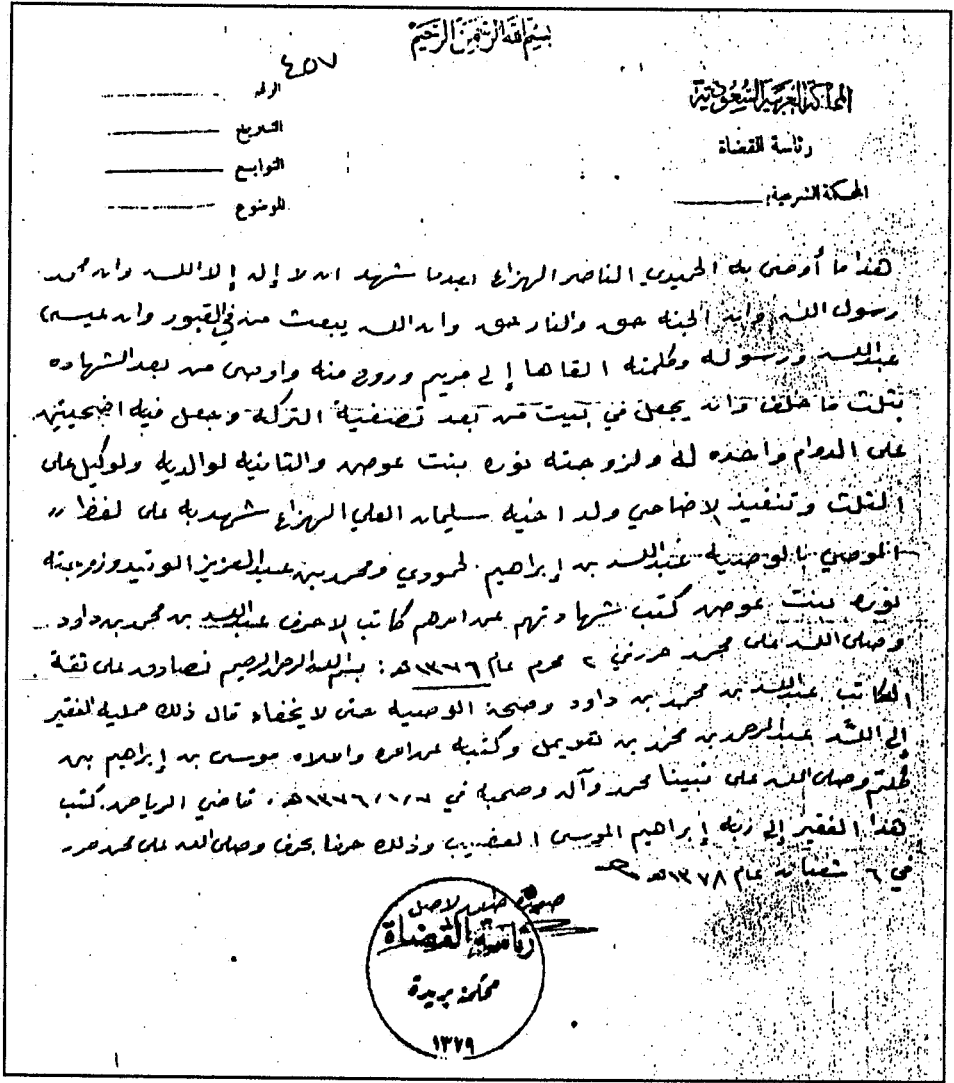 بسم الله الرحمن الرحيم
المملكة العربية السعودية
رئاسة القضاة
المحكمة الشرعية
٤٥٧
الرقم
التاريخ
التوابع
الموضوع
هذا ما أوصى به الحميدي الناصر الهزاع بعدما شهد ان لا إله إلا الله وان محمد
رسول الله وان الجنه حق والنار حق وان الله يبعث من في القبور وان عيسى
عبدالله ورسوله وكلمته القاها إلى مريم وروح منه واوصى من بعد الشهاده
بثلث ما خلف وان يجعل في بيت من بعد تصفية التركة وجعل فيه اضحيتين
على الدوام واحده له ولزوجته نوره بنت عوض والثانيه لوالديه ولوكيل على
الثلث وتنفيذ الاضاحي ولد اخيه سليمان العلي الهزاع شهد به على لفظ
الموصي بالوصيه عبدالله بن إبراهيم لحمودي ومحمد بن عبدالعزيز الوتيد وزوجته
نوره بنت عوض كتب شهادتهم عن امرهم كاتب الاحرف عبدالله بن محمد بن داود
وصلى الله على محمد حرر في ٢ محرم عام ١٣٧٦هـ: بسم الله الرحمن الرحيم نصادق على ثقة
الكاتب عبدالله بن محمد بن داود وصحة الوصيه حتى لا يخفاه قال ذلك ممليه الفقير
إلى الله عبدالرحمن بن محمد بن لقويمل وكتبه عن امره واملاه موسى بن إبراهيم بن
وصلى الله على نبينا محمد وآله وصحبه في ١٣٧٦/١/٧هـ. قاضي الرياض. كتب
هذا الفقير إلى ربه إبراهيم الموسى العضيب وذلك حرفا بحرف وصلى الله على محمد حرر
في ٦ شعبان عام ١٣٧٨هـ
صورة طبق لاصل
رئاسة القضاة
محكمة بريدة
١٣٧٩